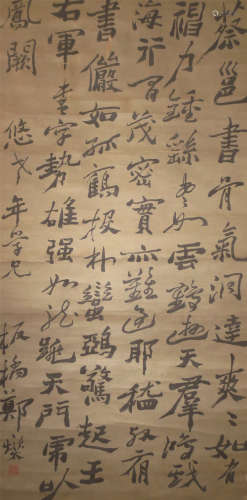 蔡邕書骨氣洞達爽爽如有
神力鍾繇書如雲鵠遊天羣鴻戲
海行間茂密實亦難過耶嵇叔夜
書儼如孤鶴蠻鵶驚起王
右軍書字勢雄強如龍跳天門虎臥
鳳闕
年學兄 板橋鄭燮